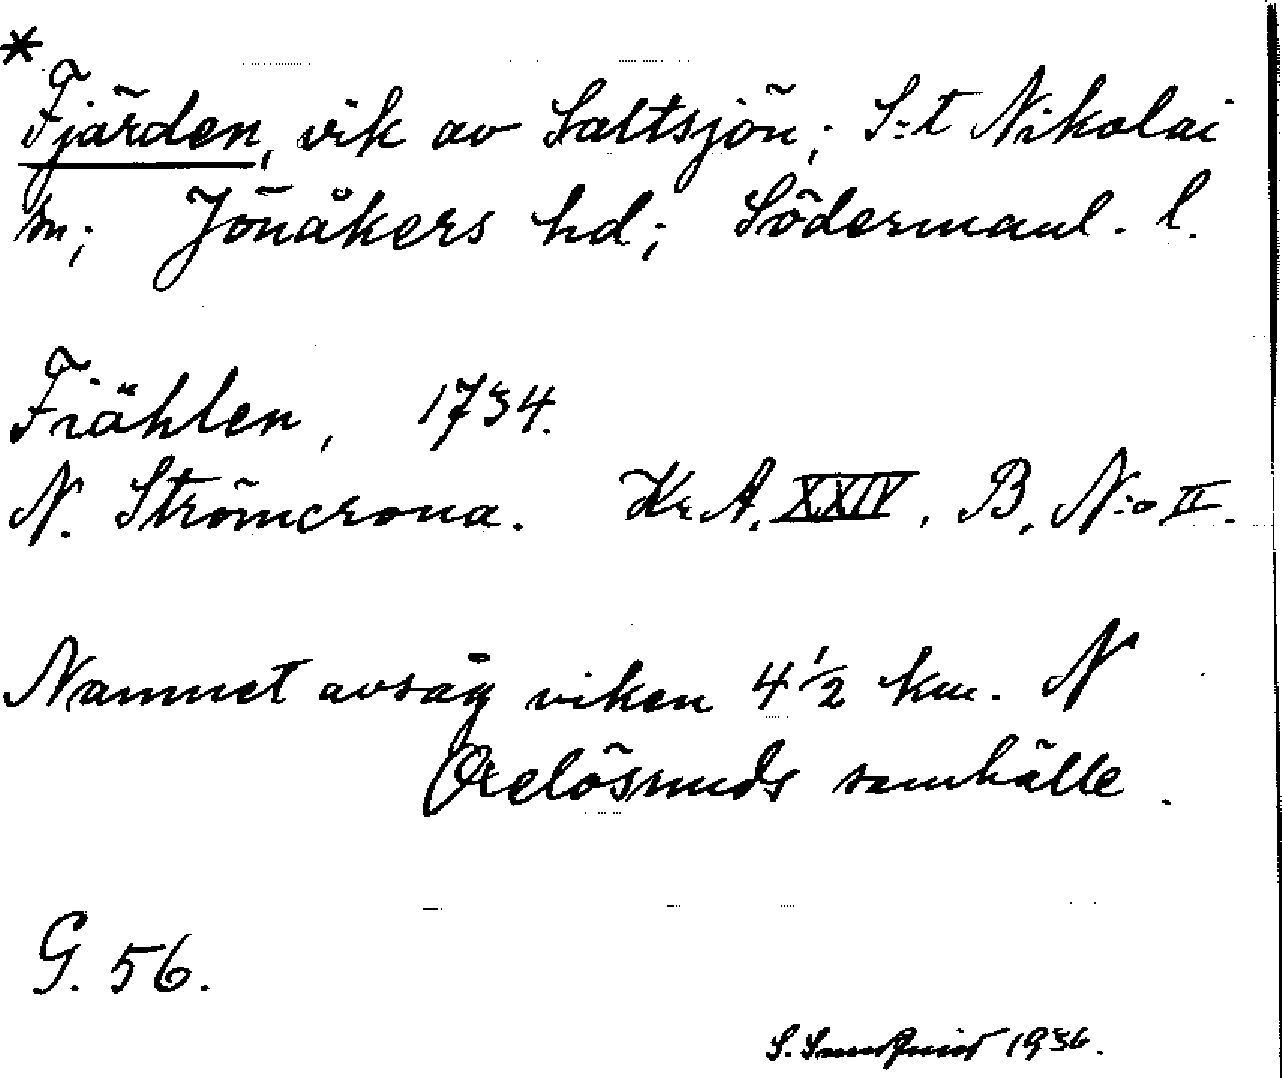 *
Fjärden, vik av Saltsjön; S:t Nikolai
sn; Jönåkers hd; Södermanl. l.
Fiählen, 1734.
N. Strömcrona. Kr. A. XXIV. B. N:o II.
Namnet avsåg viken 4 1/2 km. N
Oxelösunds samhälle.
G. 56.
S. Sundqvist 1936.